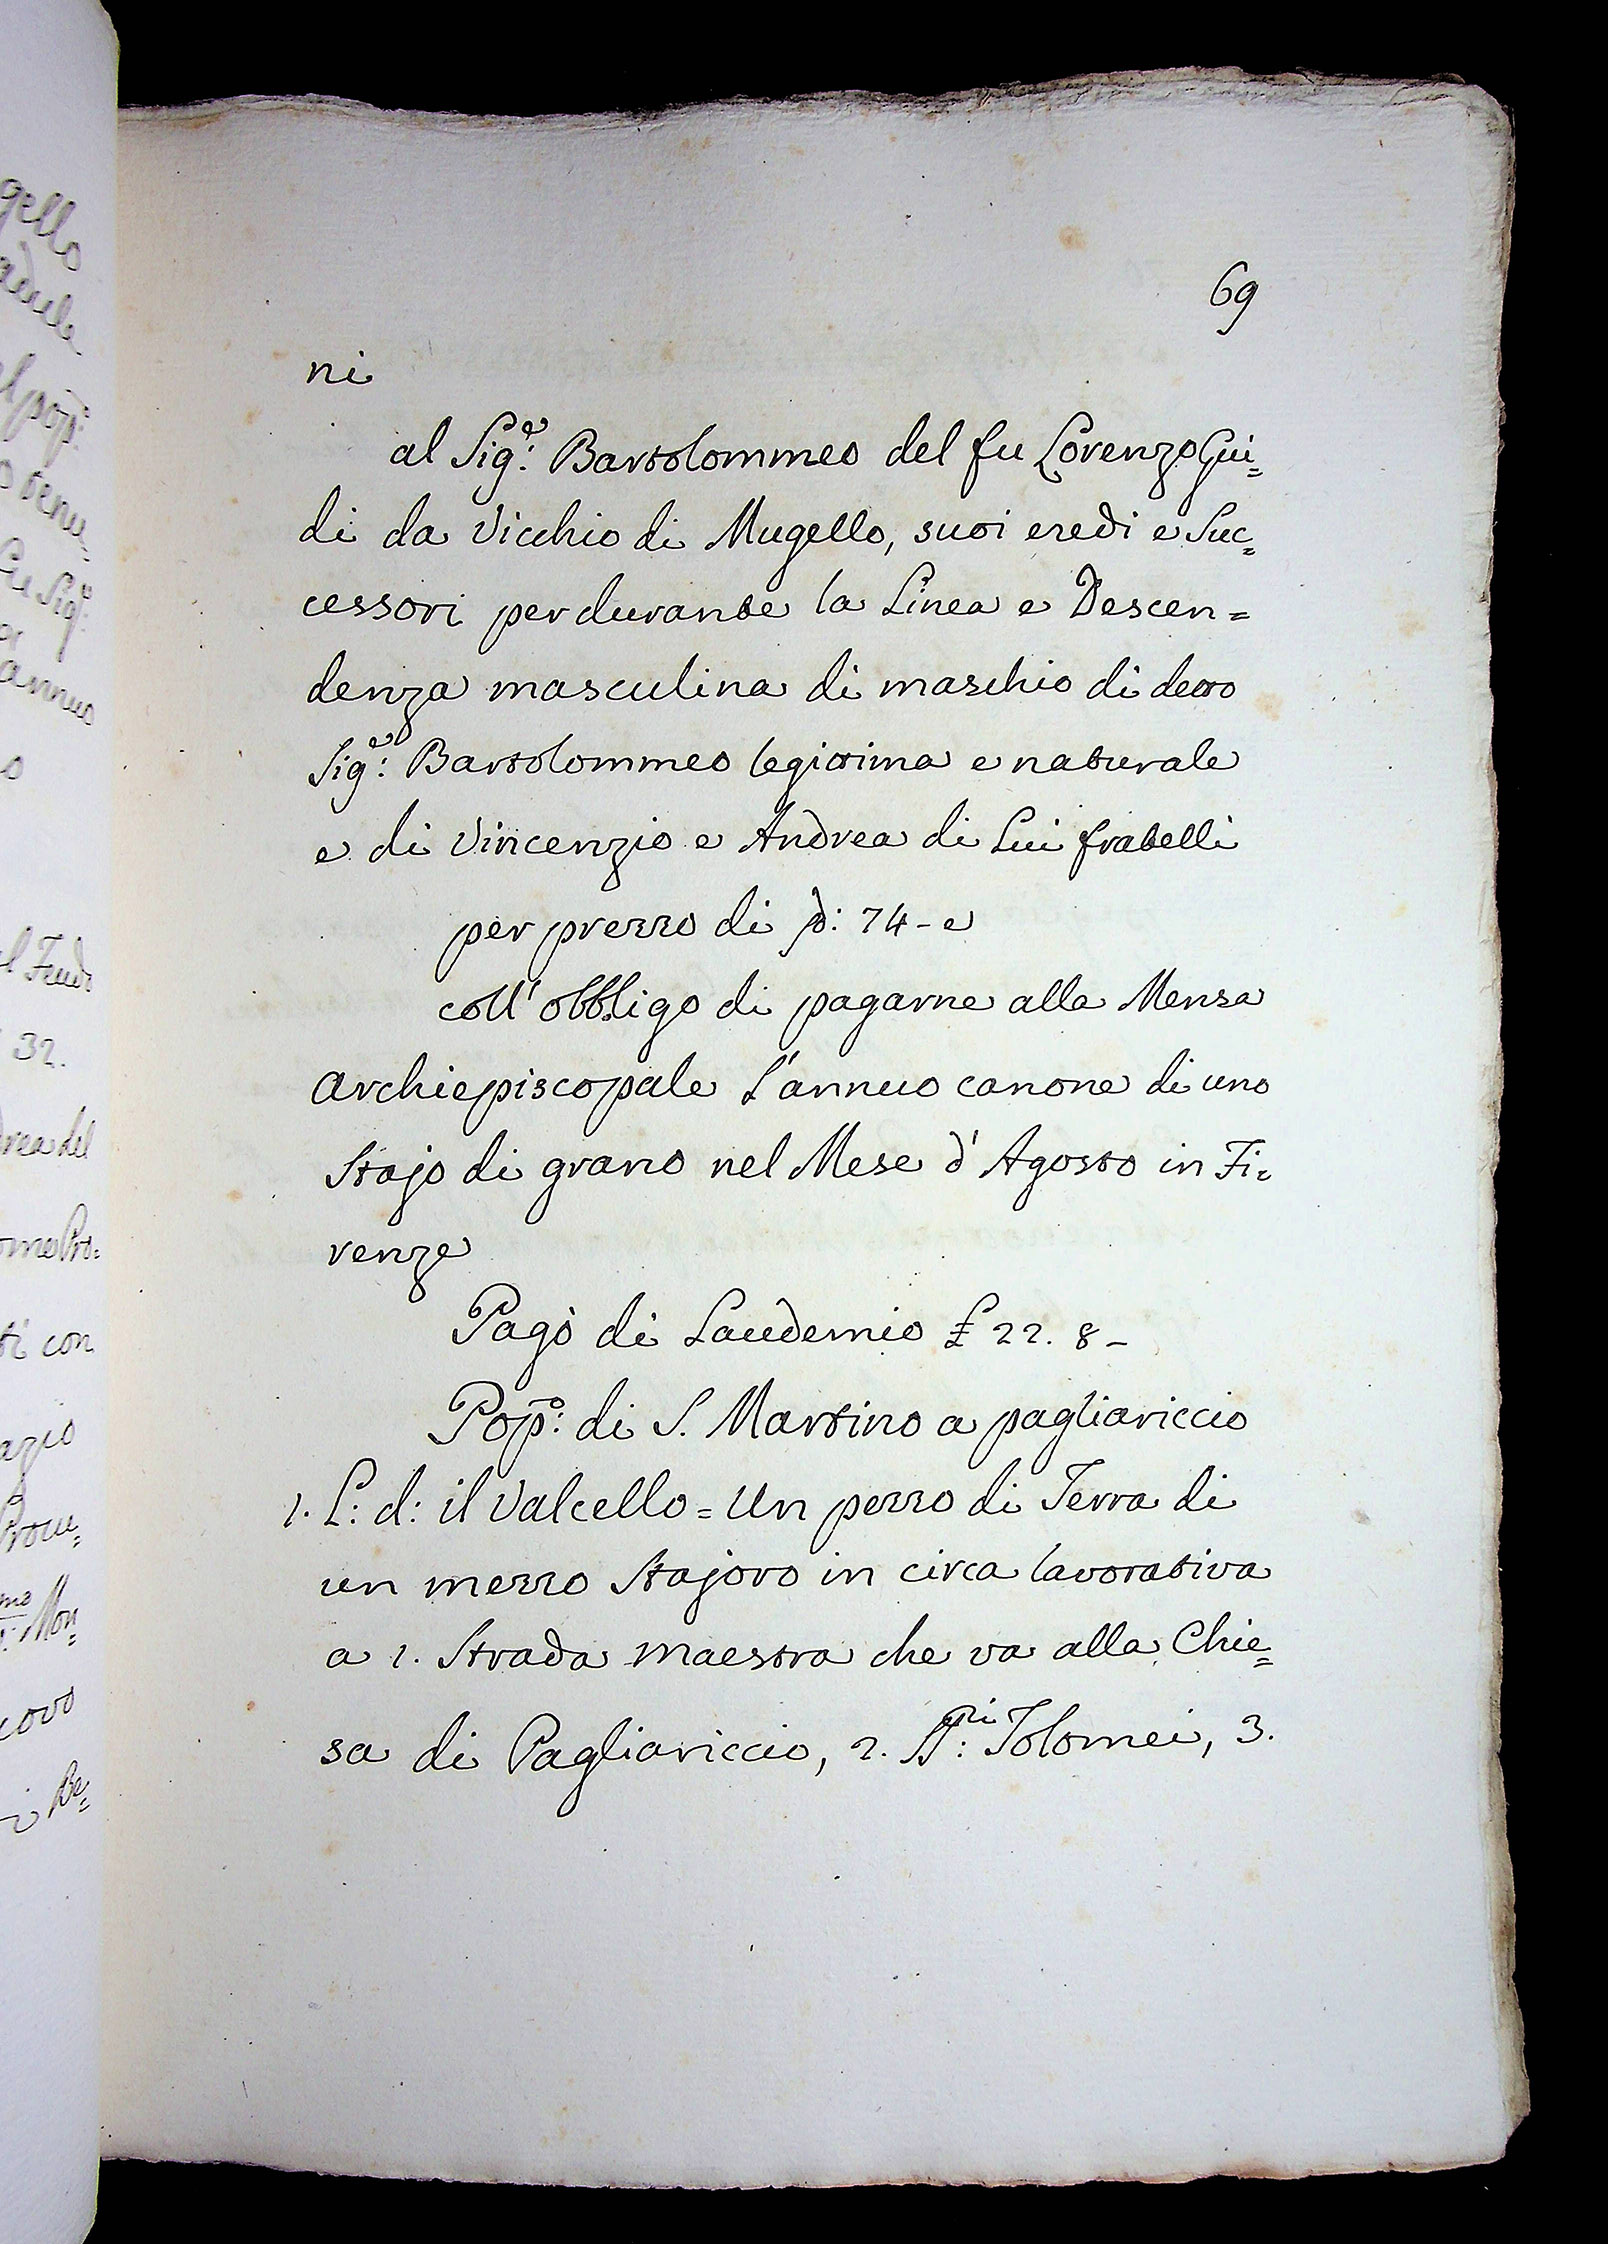 69
ni
al Sig.e Bartolommeo del fu Lorenzo Gui=
di da Vicchio di Mugello, suoi eredi e Suc=
cessori per durante la Linea e Descen=
denza masculina di maschio di detto
Sig.e Bartolommeo legittima e naturale
e di Vincenzio e Andrea di Lui fratelli
per prezzo di 74 - e
coll' obbligo di pagarne alla Mensa
Archiepiscopale L'annuo canone di uno
Stajo di grano nel Mese d'Agosto in Fi=
renze
Pagò di Laudemio £ 22. 8 -
Pop.o: di S. Martino a pagliariccio
1. L: d: il Valcello = Un pezzo di Terra di
un mezzo Stajoro in circa lavorativa
a 1. Strada maestra che va alla Chie=
sa di Pagliariccio, 2. Tolomei, 3.
gello
pop.o
Sig.e
annuo
32.
del
con
Mon
Be=